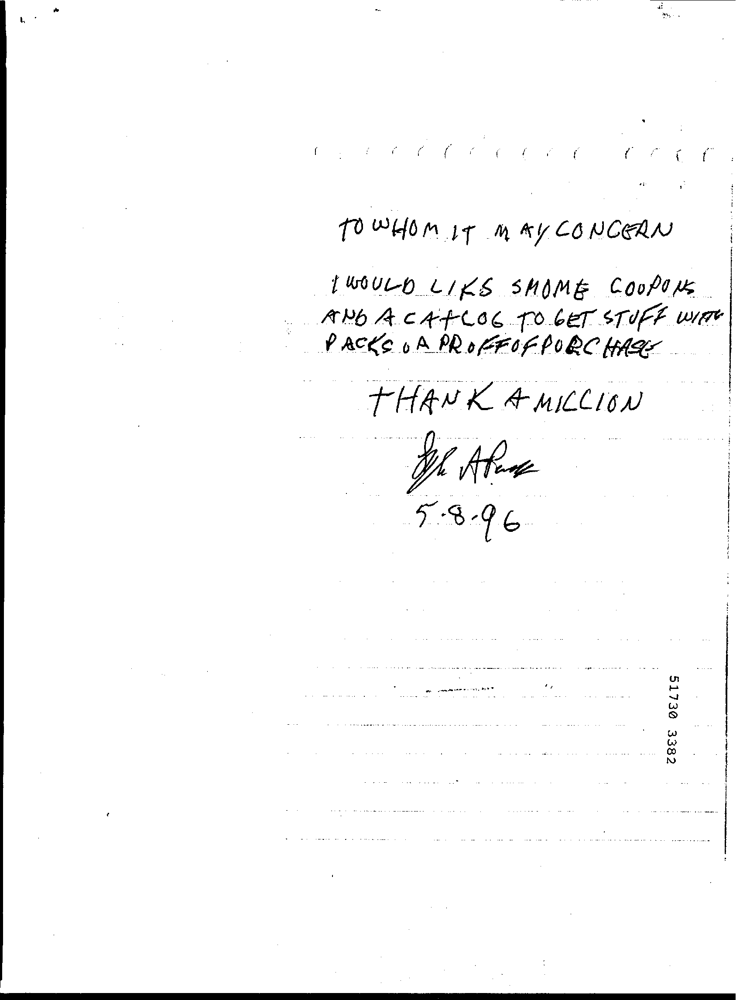 TO WHOM IT MAY CONCERN
I WOULD LIKS SMOME COOPONS
AND A CATLOG TO GET STUFF WITH
PACKS OA PROFFOFPORCHASE
THANK A MILLION
5-8-96
51730 3382